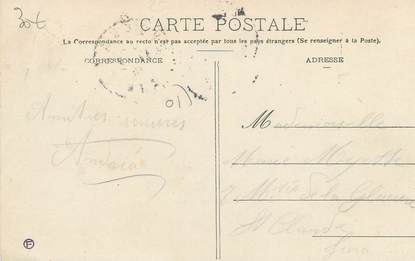 30€
CARTE POSTALE
La Correspondance au recto n'est pas acceptée par tous les pays étrangers (Se renseigner à la Poste).
CORRESPONDANCE
ADRESSE
Amitiés sincères
Mademoiselle
de la
St Claude
Jura